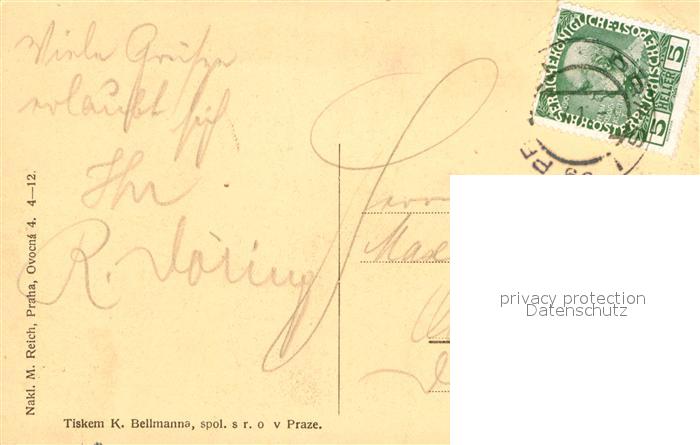 Viele Grüße
erlaubt sich
Ihr
R. Döring
Herrn
Max
Nakl. M. Reich, Praha, Ovocná 4. 4—12.
Tiskem K. Bellmanna, spol. s r. o v Praze.
5
HELLER
5
privacy protection
Datenschutz